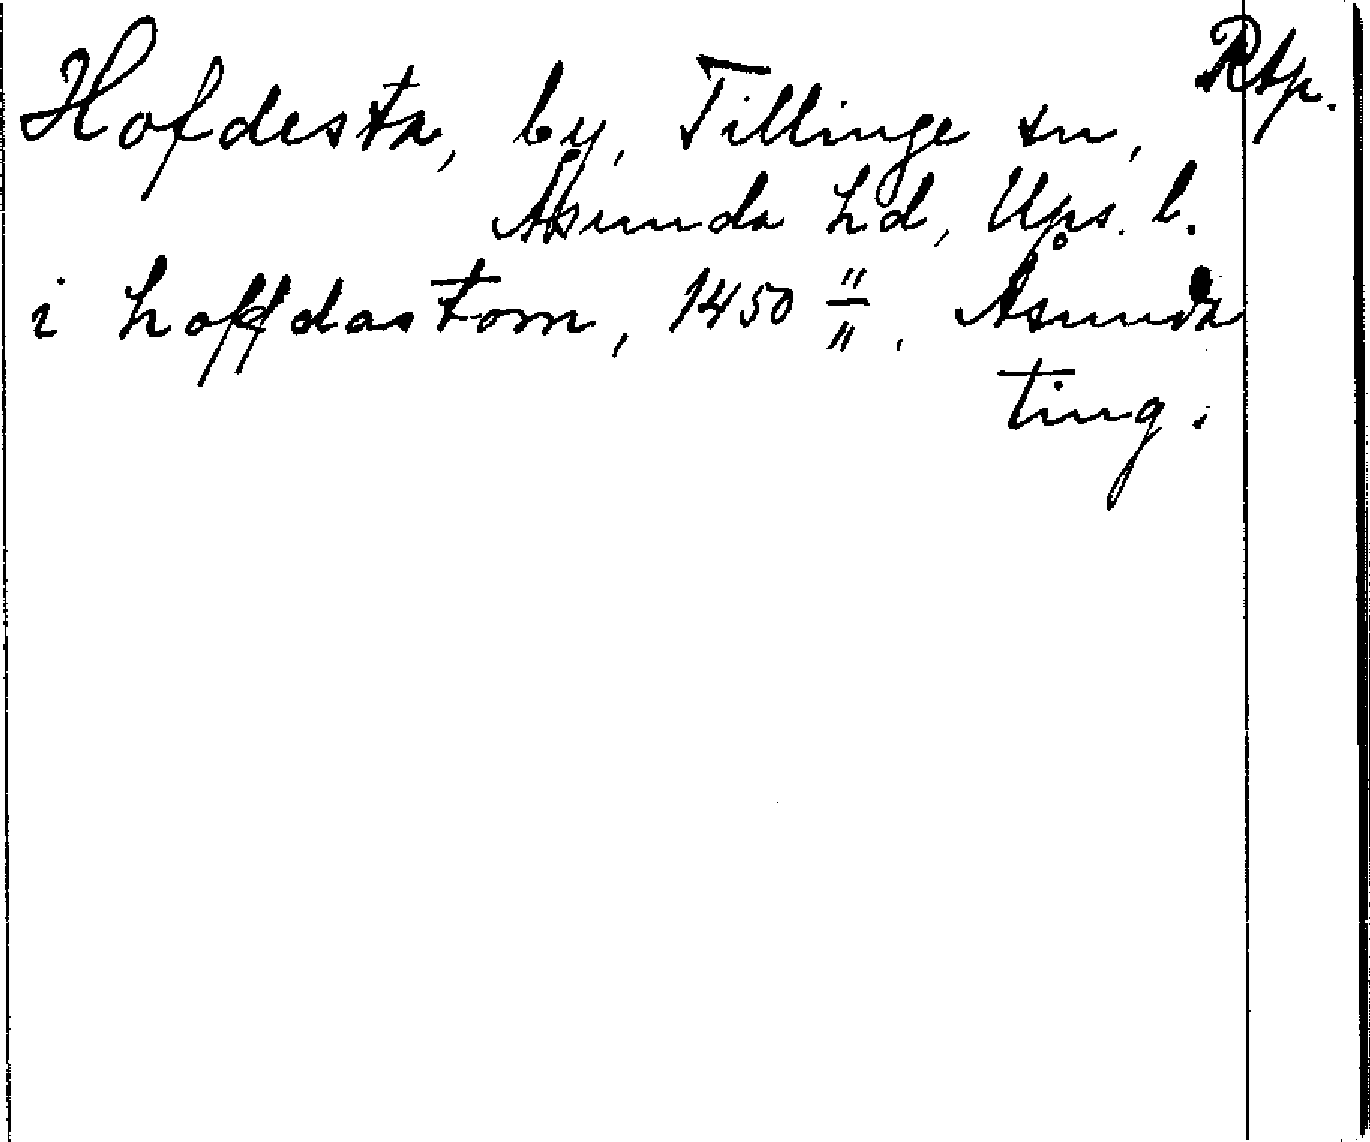 Rtp.
Hofdesta, by, Tillinge sn,
Åsunda hd, Ups. l.
i hoffdastom, 1450 "/". Åsunda
ting.